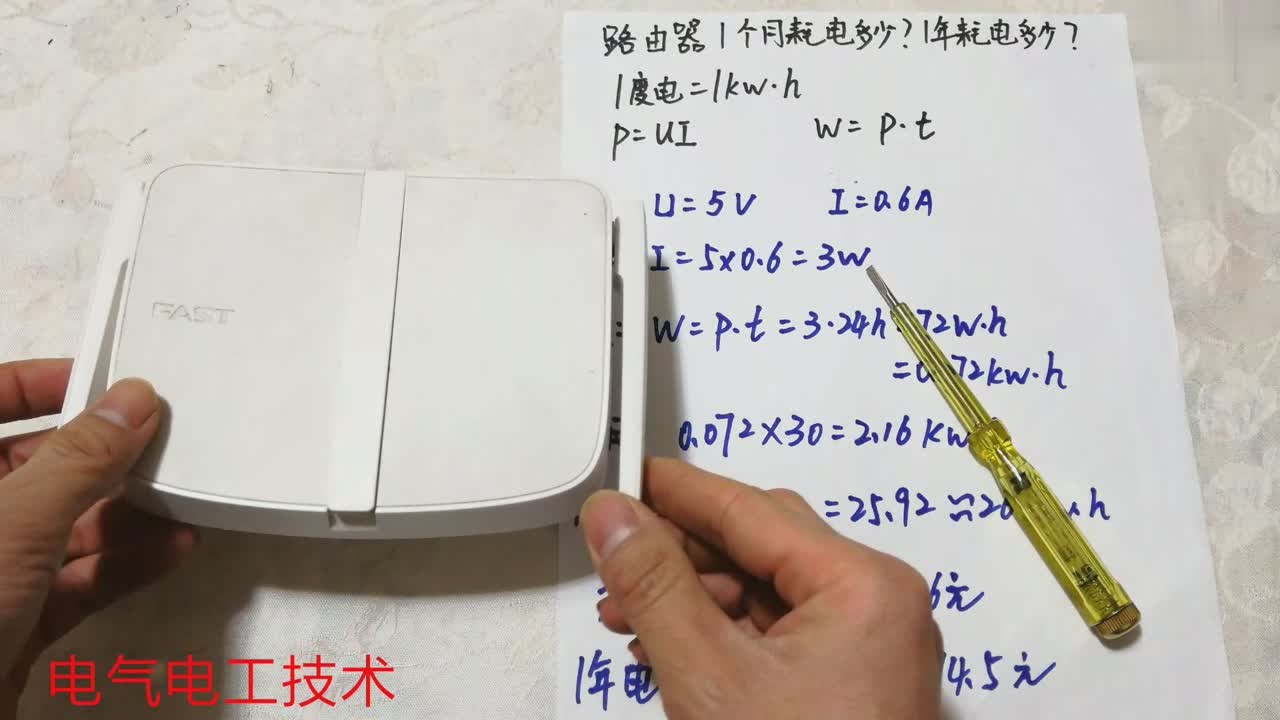 路由器1个月耗电多少?1年耗电多少?
1度电=1kw·h
P=UI W=P·t
U=5V I=0.6A
I=5×0.6=3W
W=P·t=3·24h 72w·h
= 72kw·h
0.072×30=2.16kw
=25.92≈
6元
1年电 4.5元
FAST
电气电工技术